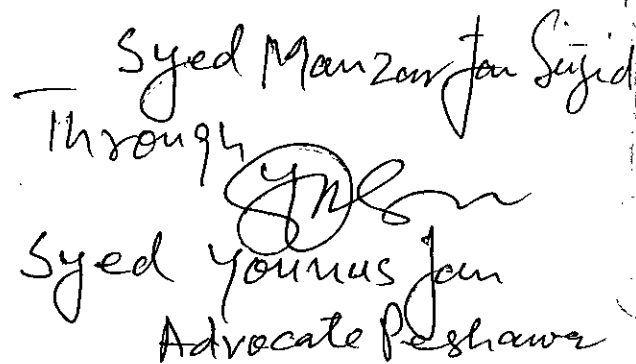 Syed Manzar Jan Sajid
Through
Syed Younus Jan
Advocate Peshawar